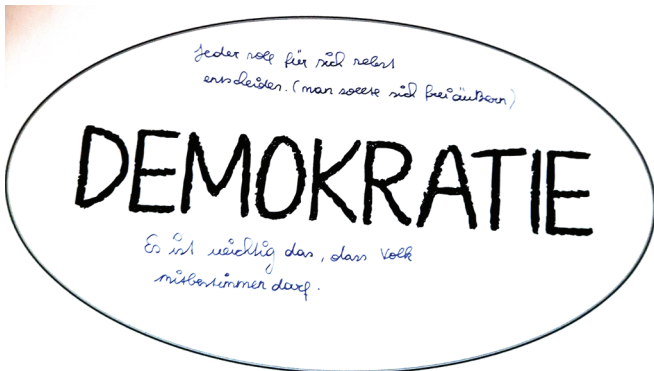 Jeder soll für sich selbst
entscheiden. (man sollte sich frei äußern)
DEMOKRATIE
Es ist wichtig das, dass Volk
mitbestimmen darf.